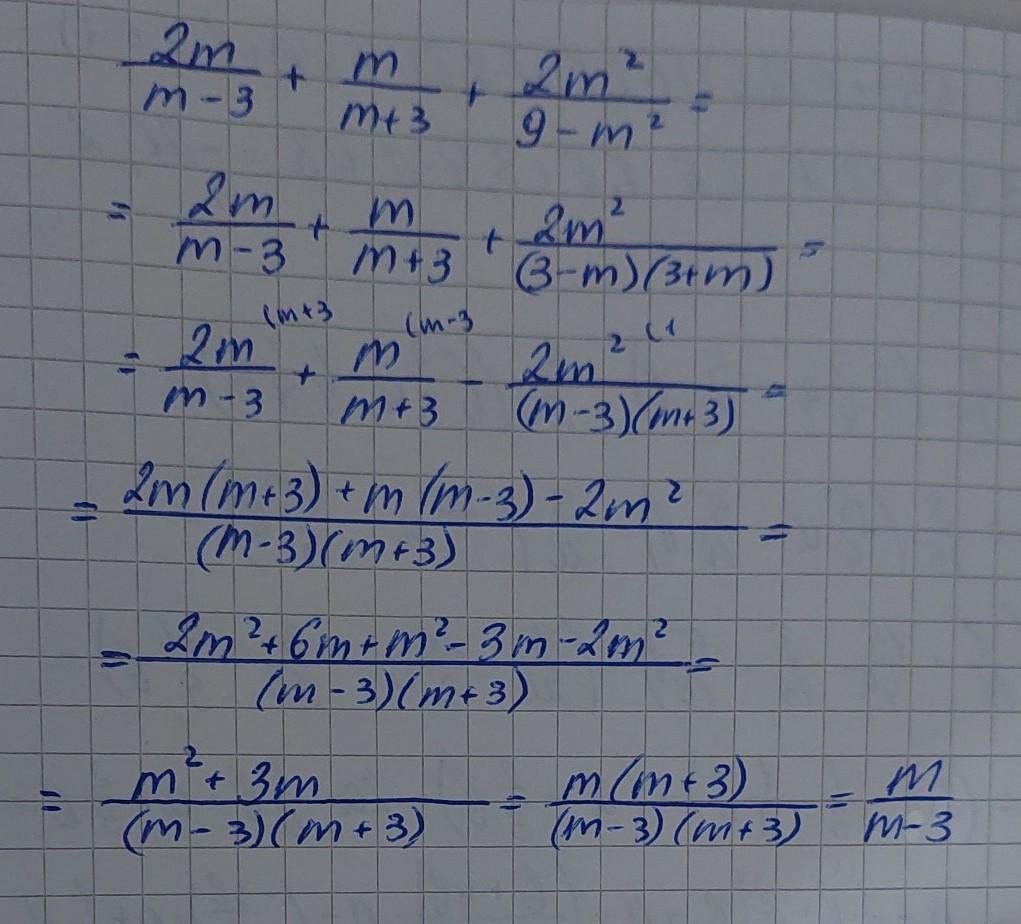 2m/(m-3) + m/(m+3) + 2m²/(9-m²) =
= 2m/(m-3) + m/(m+3) + 2m²/((3-m)(3+m)) =
= 2m^(m+3/(m-3) + m^(m-3/(m+3) - 2m²^(1/((m-3)(m+3)) =
= (2m(m+3) + m(m-3) - 2m²)/((m-3)(m+3)) =
= (2m²+6m+m²-3m-2m²)/((m-3)(m+3)) =
= (m²+3m)/((m-3)(m+3)) = m(m+3)/((m-3)(m+3)) = m/(m-3)